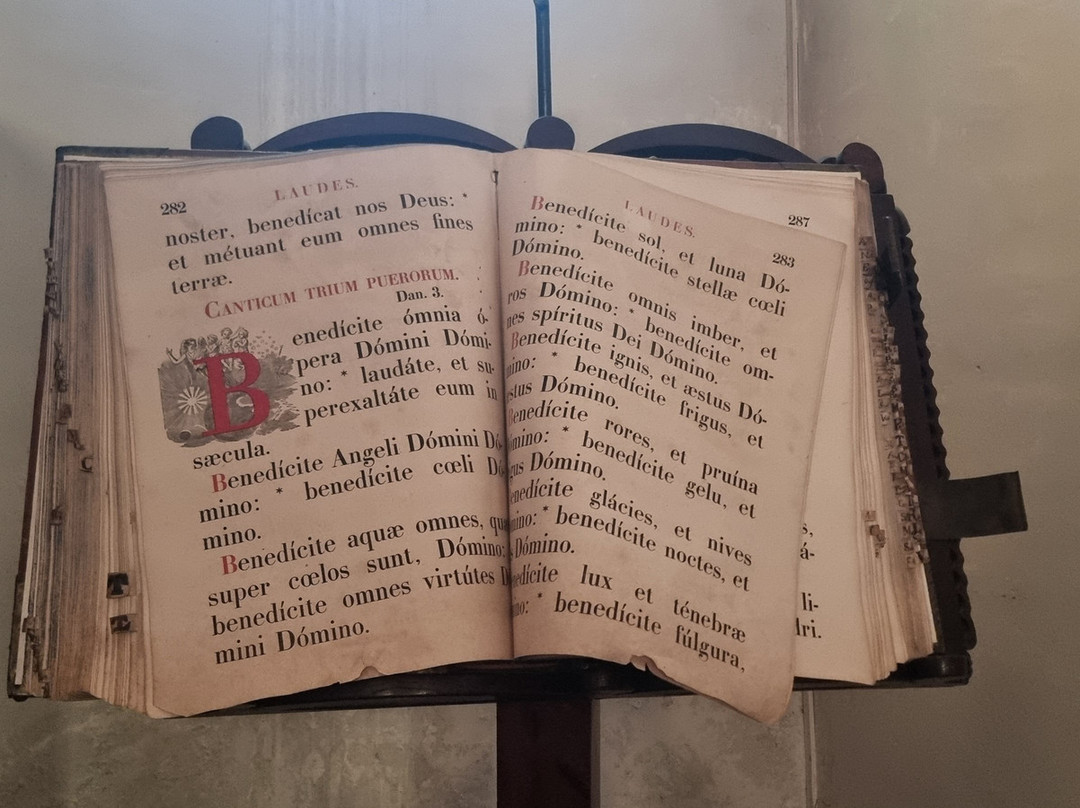 282
LAUDES.
noster, benedícat nos Deus: *
et métuant eum omnes fines
terræ.
CANTICUM TRIUM PUERORUM.
Dan. 3.
Benedícite ómnia ó-
pera Dómini Dómi-
no: * laudáte, et su-
perexaltáte eum in
sæcula.
Benedícite Angeli Dómini Dó-
mino: * benedícite cœli Dó-
mino.
Benedícite aquæ omnes, quæ
super cœlos sunt, Dómino:
benedícite omnes virtútes
mini Dómino.
LAUDES.
283
Benedícite sol, et luna Dó-
mino: * benedícite stellæ cœli
Dómino.
Benedícite omnis imber, et
ros Dómino: * benedícite om-
nes spíritus Dei Dómino.
Benedícite ignis, et æstus Dó-
mino: * benedícite frigus, et
æstus Dómino.
Benedícite rores, et pruína
Dómino: * benedícite gelu, et
frigus Dómino.
Benedícite glácies, et nives
Dómino: * benedícite noctes, et
Dómino.
Benedícite lux et ténebræ
Dómino: * benedícite fúlgura,
287
s,
á-
li-
dri.
T
E